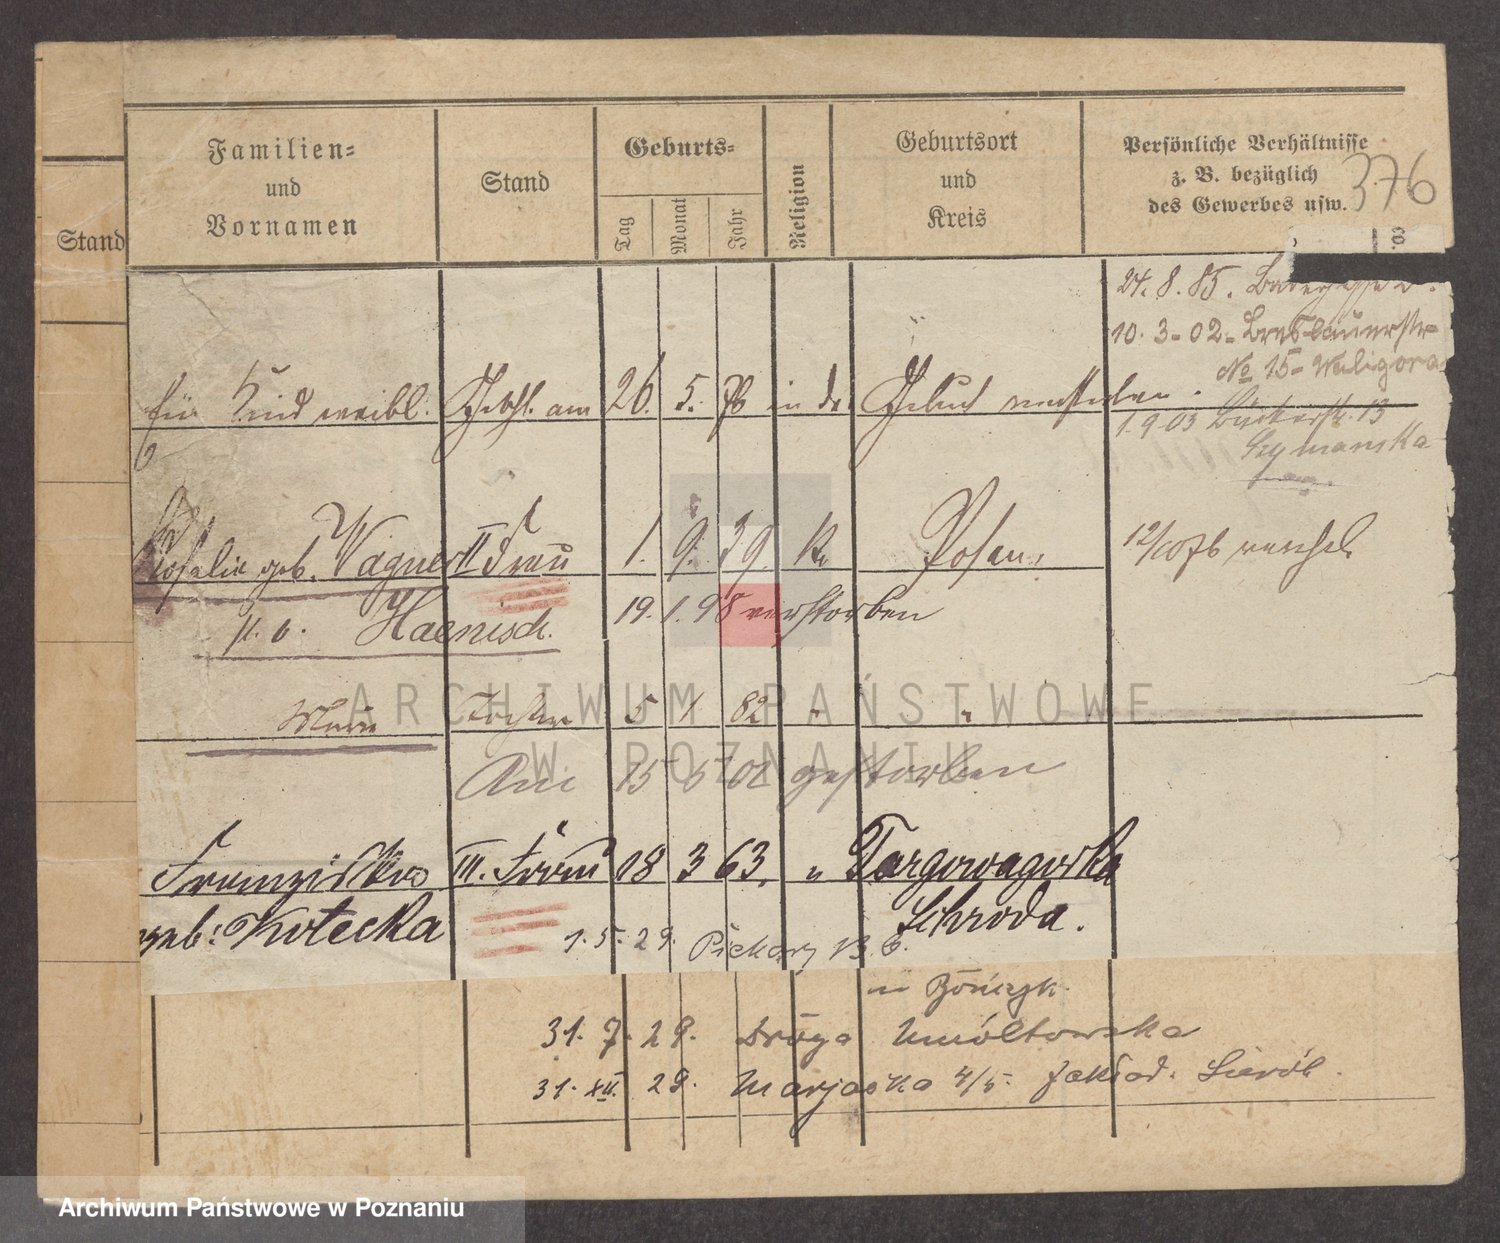 Stand
Familien-
und
Vornamen
Stand
Geburts-
Tag
Monat
Jahr
Religion
Geburtsort
und
Kreis
Persönliche Verhältnisse
z. B. bezüglich
des Gewerbes usw.
376
24. 8. 85.
10. 3 - 02 - Breslauerstr
No 15 - Waligora
ein Kind weibl. Geschl. am 26. 5. 76 in der Geburt verstorben.
1.9.03 Bäckerstr. 13
Szymanska
Rosalie geb. Wagner II Frau 1. 9. 39. k. Posen.
19. 1. 98 verstorben
Haenisch.
Marie Tochter 5 1 82 " "
Am 15 6 02 gestorben
Franziska III. Frau 18 3 63. " Targowagorka
geb: Kotecka Schroda.
1. 5. 29. Piekary 13. 6.
31. 7. 29. Droga Umóltowska
31. XII. 29. Marjacka 4/5.
ARCHIWUM PAŃSTWOWE
W POZNANIU
Archiwum Państwowe w Poznaniu